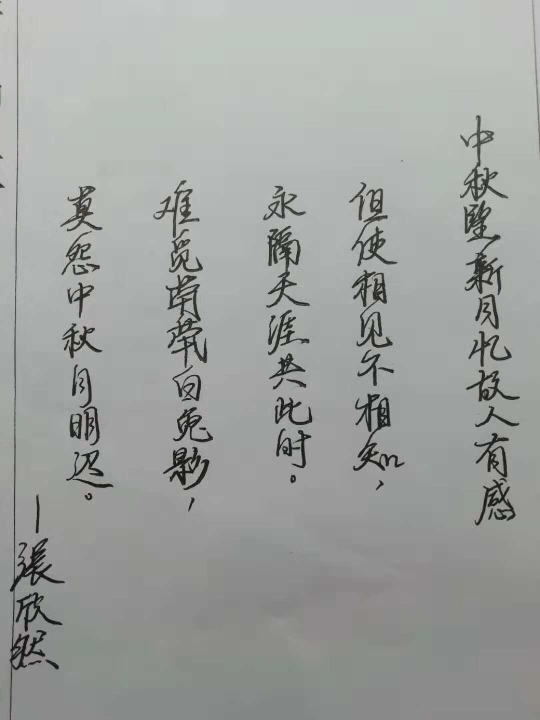 中秋望新月忆故人有感
但使相见不相知，
永隔天涯共此时。
难觅白兔影，
莫怨中秋月明迟。
—張欣然